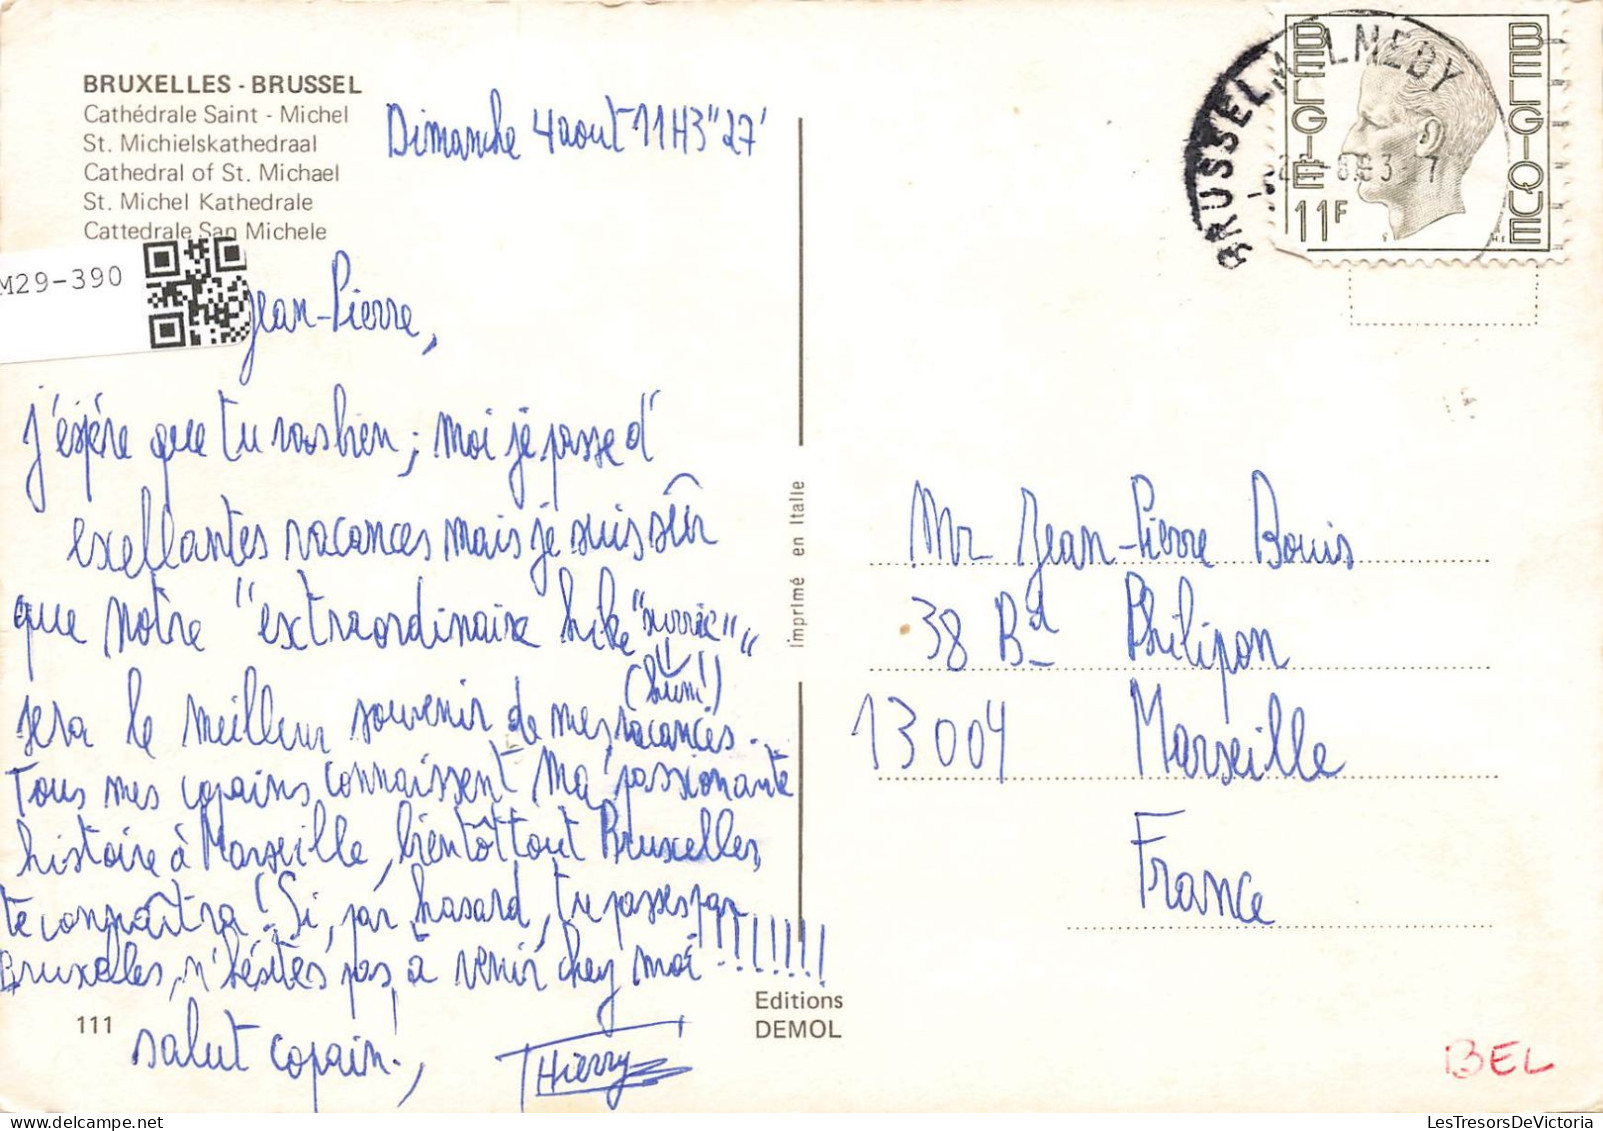 BRUXELLES - BRUSSEL
Cathédrale Saint - Michel
St. Michielskathedraal
Cathedral of St. Michael
St. Michel Kathedrale
Cattedrale San Michele
M29-390
Dimanche 4 aout 11H3"27'
Jean-Pierre,
j'éspére que tu vas bien; moi je passe d'
exellantes vacances mais je suis sûr
que notre "extraordinaire hike
(hum!)
sera le meilleur souvenir de mes vacances.
Tous mes copains connaissent ma passionante
histoire à Marseille, bientôt tout Bruxelles
te connaîtra! Si, par hasard, tu passes par
Bruxelles, n'hésites pas à venir chez moi !!!!!!!!
salut copain!,
THierry
111
Imprimé en Italie
Editions
DEMOL
BRUSSEL
BELGIE
BELGIQUE
11F
Mr Jean-Pierre Bouis
38 Bd Philipon
13004 Marseille
France
BEL
LesTresorsDeVictoria.com